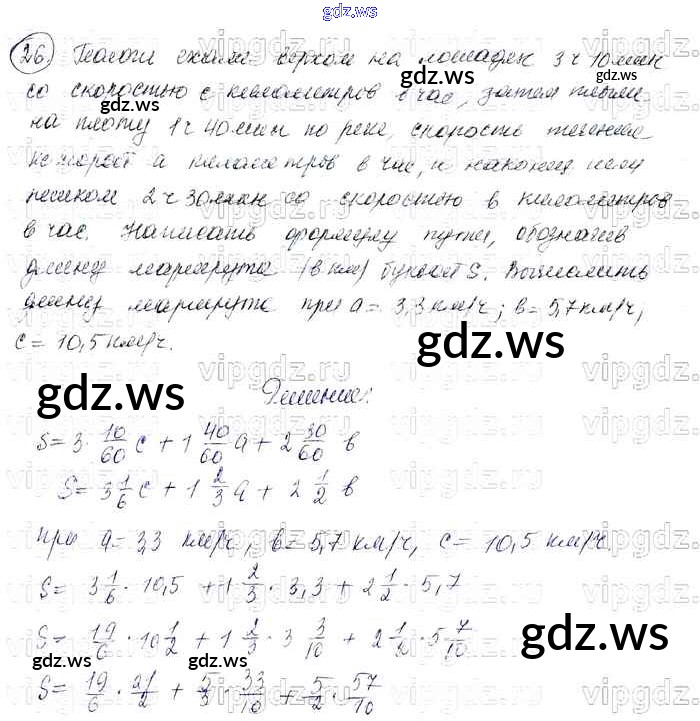 gdz.ws
26. ехали верхом на лошадях 3 ч 10 мин
со скоростью с километров в час, затем плыли
на плоту 1 ч 40 мин по реке, скорость течения
которой а километров в час, и наконец шли
пешком 2 ч 30 мин со скоростью в километров
в час. Написать формулу пути, обозначив
длину маршрута (в км) буквой S. Вычислить
длину маршрута при а = 3,3 км/ч; в = 5,7 км/ч,
с = 10,5 км/ч.
Решение:
S = 3 · 10/60 с + 1 40/60 а + 2 30/60 в
S = 3 1/6 с + 1 2/3 а + 2 1/2 в
при а = 3,3 км/ч, в = 5,7 км/ч, с = 10,5 км/ч
S = 3 1/6 · 10,5 + 1 2/3 · 3,3 + 2 1/2 · 5,7
S = 19/6 · 10 1/2 + 1 2/3 · 3 3/10 + 2 1/2 · 5 7/10
S = 19/6 · 21/2 + 5/3 · 33/10 + 5/2 · 57/10